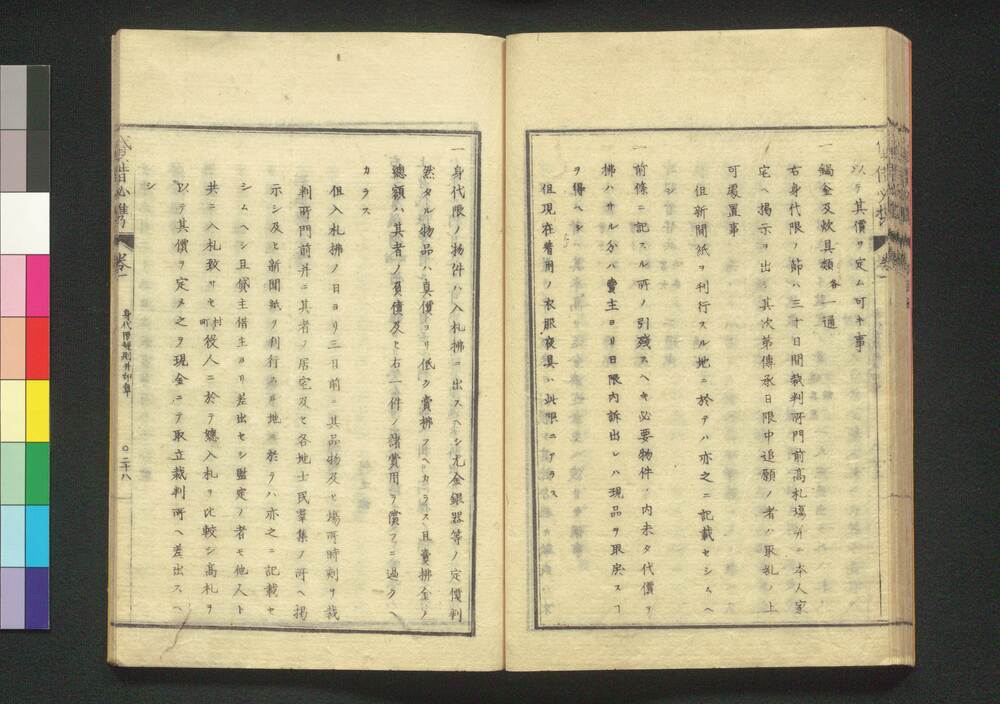 以テ其價ヲ定ム可キ事
一鍋釜及炊具類各一通
右身代限ノ節ハ三十日間裁判所門前高札場并ニ本人家
宅ヘ掲示ヲ出シ其次第傳承日限中追願ノ者ハ取糺ノ上
可處置事
但新聞紙ヲ刊行スル地ニ於テハ亦之ニ記載セシムヘシ
一前條ニ記スル所ノ引殘スヘキ必要物件ノ内未タ代價ヲ
拂ハサル分ハ賣主ヨリ日限内訴出レハ現品ヲ取戻スヿ
ヲ得ヘシ
但現在着用ノ衣服夜具ハ此限ニアラス
一身代限ノ物件ハ入札拂ニ出スヘシ尤金銀器等ノ定價判
然タル物品ハ真價ヨリ低ク賣拂フヘカラス且賣拂金ノ
總額ハ其者ノ負債及ヒ右一件ノ諸費用ヲ償フニ過クヘ
カラス
但入札拂ノ日ヨリ三日前ニ其品物及ヒ場所時刻ヲ裁
判所門前并ニ其者ノ居宅及ヒ各地士民羣集ノ所ヘ掲
示シ及ヒ新聞紙ヲ刊行スル地ニ於テハ亦之ニ記載セ
シムヘシ且貸主借主ヨリ差出セシ鑑定ノ者モ他人ト
共ニ入札致サセ村町役人ニ於テ總入札ヲ比較シ高札ヲ
以テ其價ヲ定メ之ヲ現金ニテ取立裁判所ヘ差出スヘ
シ
卷一
身代限規則并印章
〇二十八